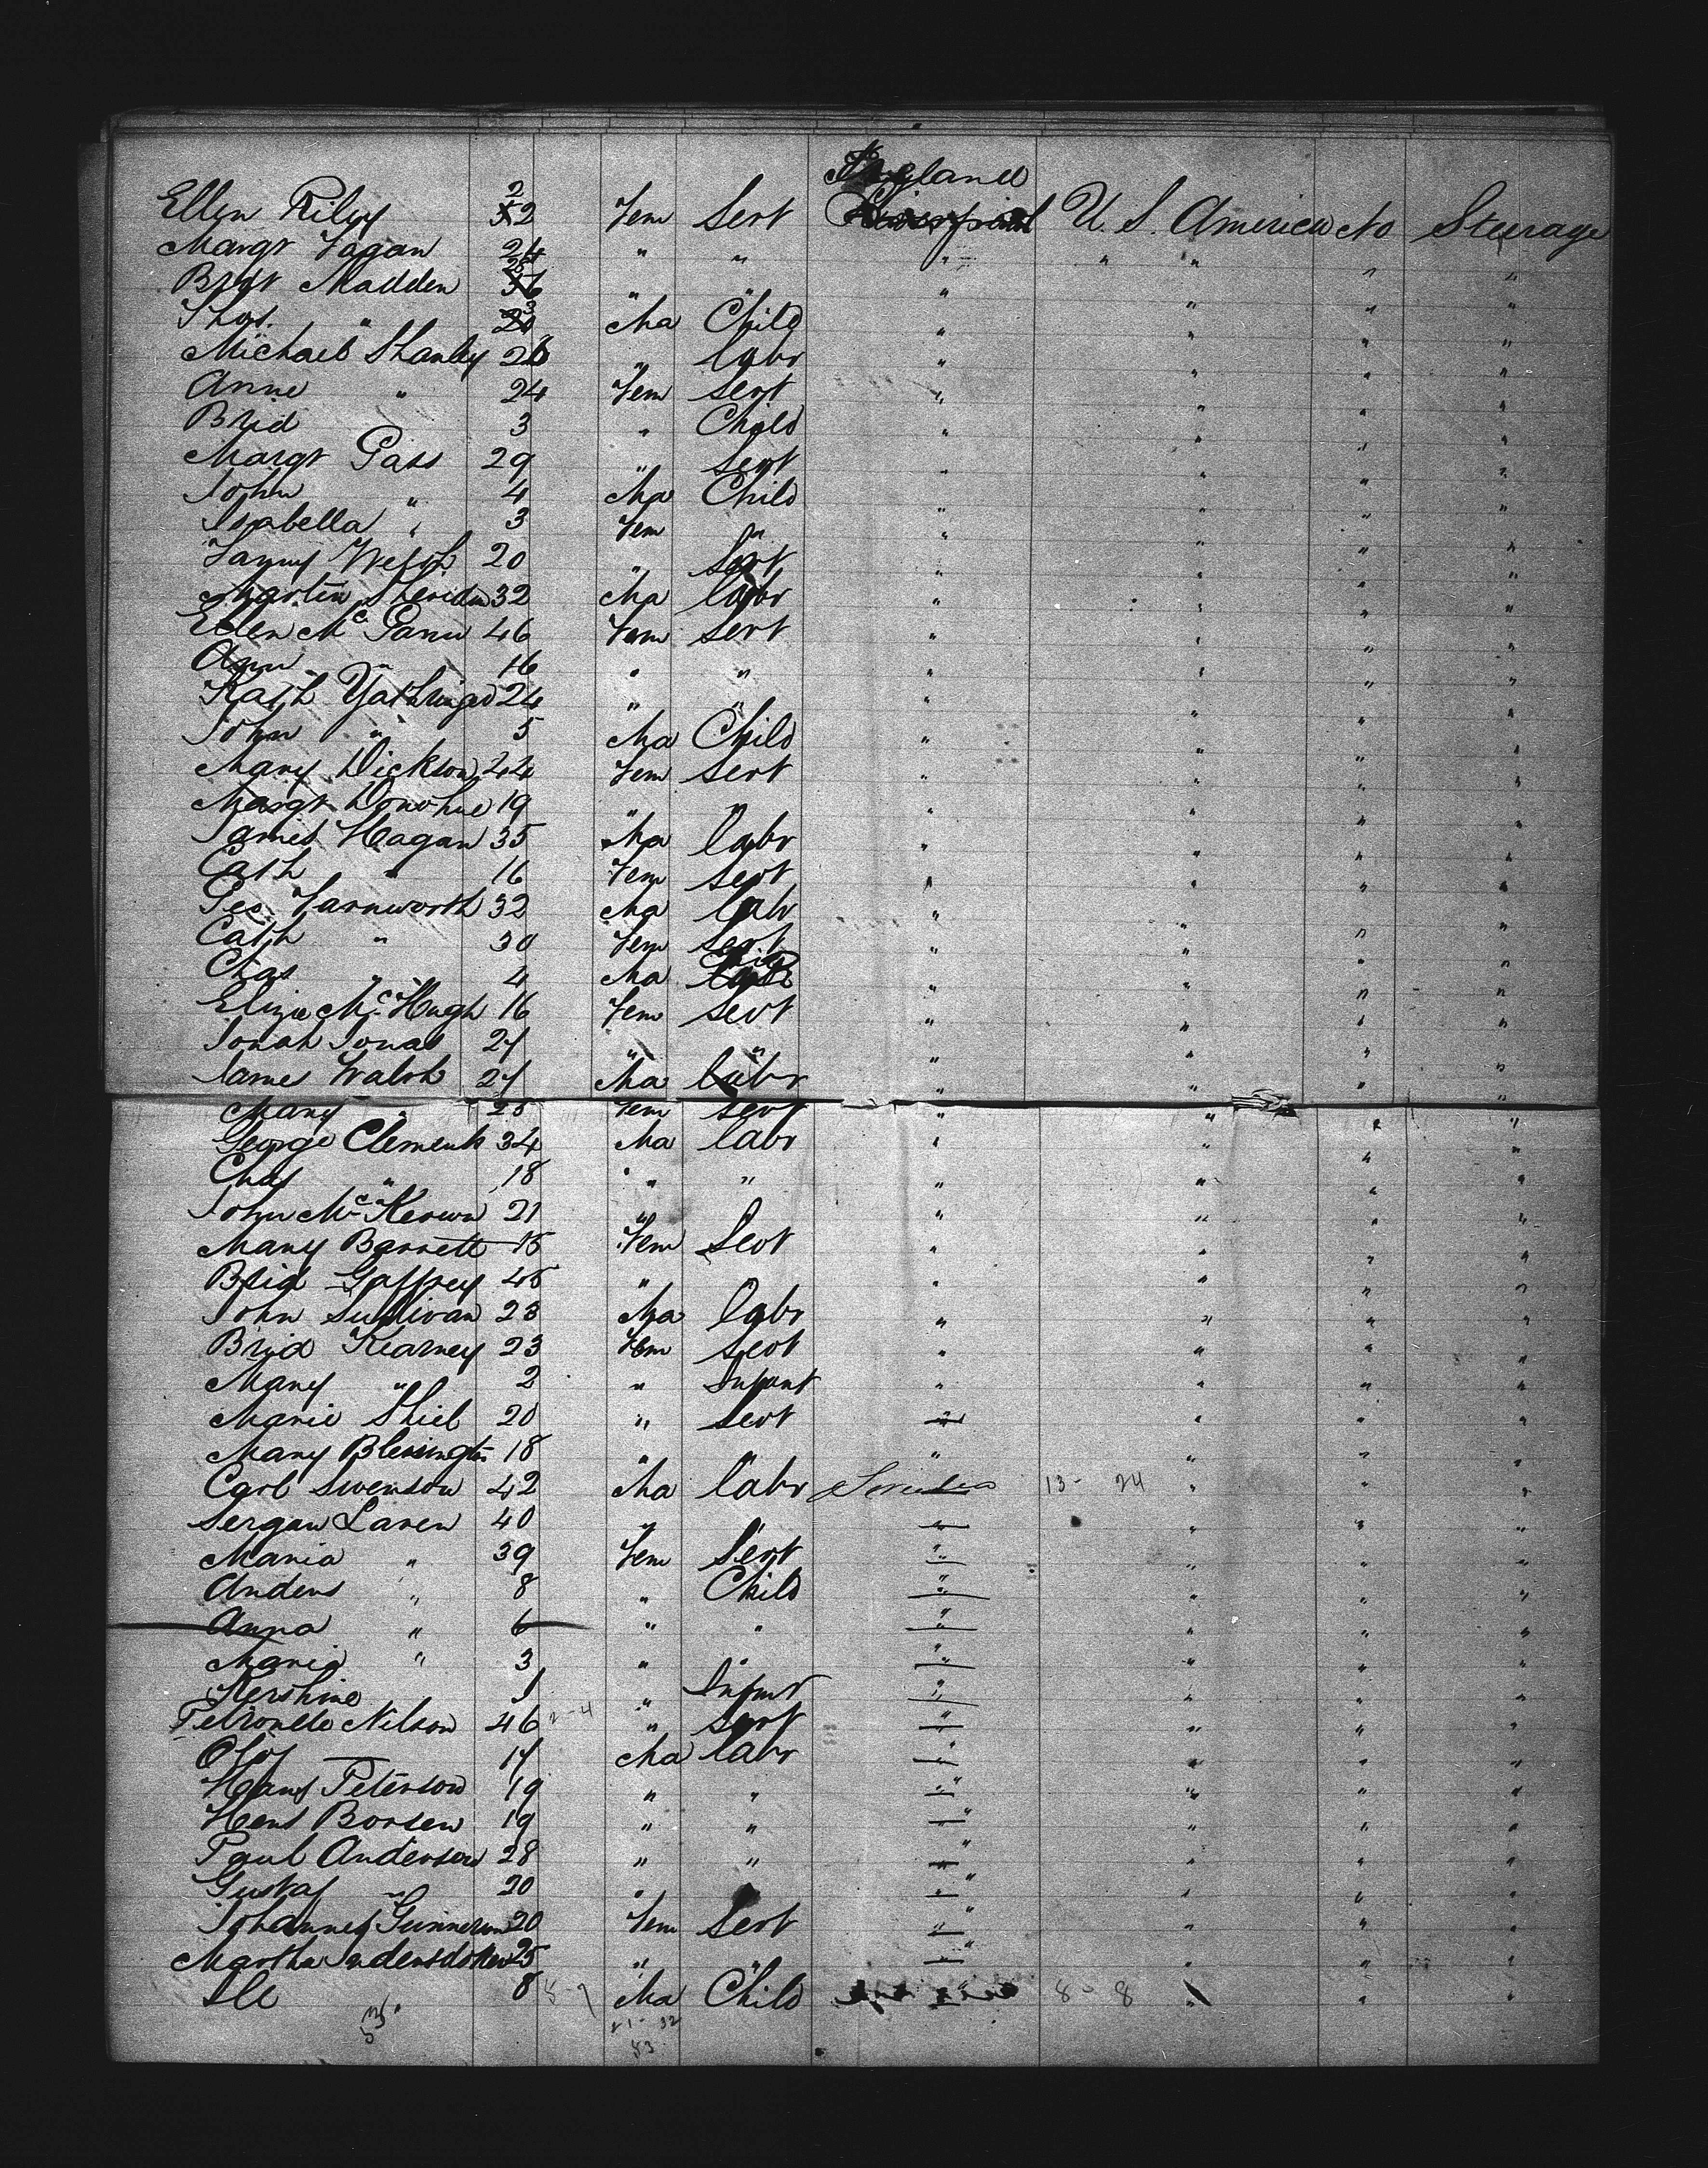 England
Ellen Riley 22 Fem Sert Liverpool U. S. America No Steerage
Margt Fagan 24 " " " " " " "
Bridt Madden 26 " " " " " "
Thos. " 3 Ma Child " " " "
Michael Shanley 26 " labr " " " "
Anne " 24 Fem Sert " " " "
Brid 3 " Child " " " "
Margt Gass 29 " Sert " " " "
John " 4 Ma Child " " " "
Isabella " 3 Fem " " " " "
Fanny Welsh 20 " Sert " " " "
Martin Sheridan 32 Ma labr " " " "
Ellen Mc Gann 46 Fem Sert " " " "
Ann " 16 " " " " " "
Kath 24 " " " " " "
John " 5 Ma Child " " " "
Mary Dickson 24 Fem Sert " " " "
Margt Donohue 19 " " " " " "
James Hagan 35 Ma labr " " " "
Cath " 16 Fem Sert " " " "
Geo Farnworth 32 Ma labr " " " "
Cath " 30 Fem Sert " " " "
Chas " 4 Ma Child " " " "
Eliza McHugh 16 Fem Sert " " " "
Jonah Jonas 24 " " " " " "
James Walsh 24 Ma labr " " " "
Mary " 25 Fem Sert " " " "
George Clements 34 Ma labr " " " "
Chas " 18 " " " " " "
John McKeown 21 " " " " "
Mary Barnett 15 Fem Sert " " " "
Brid Gaffney 45 " " " " "
John Sullivan 23 Ma labr " " " "
Brid Kearney 23 Fem Sert " " " "
Mary " 2 " Infant " " " "
Marie Shiel 20 " Sert " " " "
Mary Blessington 18 " " " " " "
Carl Swenson 42 Ma labr Sweden 13 - 24 " " "
Sergan Laren 40 " " " " " "
Maria " 39 Fem Sert " " " "
Anders " 8 " Child " " " "
Anna " 6 " " " " " "
Maria " 3 " " " " " "
Kershine 1 " Infant " " " "
Petronelle Nilson 46 2-4 " Sert " " " "
Olof 17 Ma labr " " " "
Hans Peterson 19 " " " " " "
Hens Borsen 19 " " " " " "
Paul Anderson 28 " " " " " "
Gustaf " 20 " " " " "
Johannes Gunnerson 20 Fem Sert " " " "
Martha 25 " " " " " "
8 5-7 Ma Child " 8 - 8 " " "
53 21-32
53